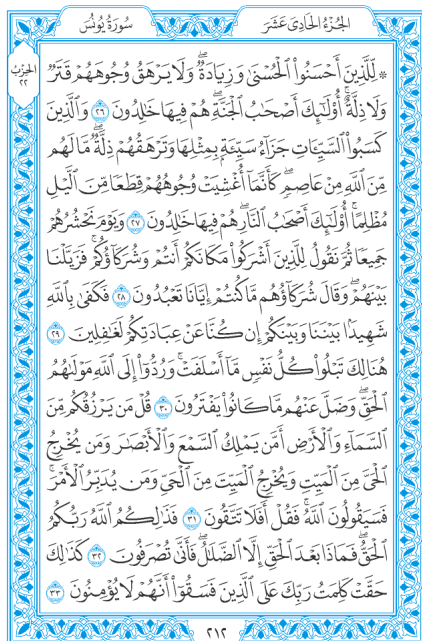 سُورَةُ يُونُسَ
الجُزْءُ الحَادِي عَشَرَ
الحِزْبُ
٢٢
۞ لِّلَّذِينَ أَحْسَنُواْ ٱلْحُسْنَىٰ وَزِيَادَةٌۖ وَلَا يَرْهَقُ وُجُوهَهُمْ قَتَرٌ
وَلَا ذِلَّةٌۚ أُوْلَٰٓئِكَ أَصْحَٰبُ ٱلْجَنَّةِۖ هُمْ فِيهَا خَٰلِدُونَ ٢٦ وَٱلَّذِينَ
كَسَبُواْ ٱلسَّيِّـَٔاتِ جَزَآءُ سَيِّئَةِۭ بِمِثْلِهَا وَتَرْهَقُهُمْ ذِلَّةٌۖ مَّا لَهُم
مِّنَ ٱللَّهِ مِنْ عَاصِمٖۖ كَأَنَّمَآ أُغْشِيَتْ وُجُوهُهُمْ قِطَعٗا مِّنَ ٱلَّيْلِ
مُظْلِمًاۚ أُوْلَٰٓئِكَ أَصْحَٰبُ ٱلنَّارِۖ هُمْ فِيهَا خَٰلِدُونَ ٢٧ وَيَوْمَ نَحْشُرُهُمْ
جَمِيعٗا ثُمَّ نَقُولُ لِلَّذِينَ أَشْرَكُواْ مَكَانَكُمْ أَنتُمْ وَشُرَكَآؤُكُمْۚ فَزَيَّلْنَا
بَيْنَهُمْۖ وَقَالَ شُرَكَآؤُهُم مَّا كُنتُمْ إِيَّانَا تَعْبُدُونَ ٢٨ فَكَفَىٰ بِٱللَّهِ
شَهِيدَۢا بَيْنَنَا وَبَيْنَكُمْ إِن كُنَّا عَنْ عِبَادَتِكُمْ لَغَٰفِلِينَ ٢٩
هُنَالِكَ تَبْلُواْ كُلُّ نَفْسٖ مَّآ أَسْلَفَتْۚ وَرُدُّوٓاْ إِلَى ٱللَّهِ مَوْلَىٰهُمُ
ٱلْحَقِّۖ وَضَلَّ عَنْهُم مَّا كَانُواْ يَفْتَرُونَ ٣٠ قُلْ مَن يَرْزُقُكُم مِّنَ
ٱلسَّمَآءِ وَٱلْأَرْضِ أَمَّن يَمْلِكُ ٱلسَّمْعَ وَٱلْأَبْصَٰرَ وَمَن يُخْرِجُ
ٱلْحَيَّ مِنَ ٱلْمَيِّتِ وَيُخْرِجُ ٱلْمَيِّتَ مِنَ ٱلْحَيِّ وَمَن يُدَبِّرُ ٱلْأَمْرَۚ
فَسَيَقُولُونَ ٱللَّهُۚ فَقُلْ أَفَلَا تَتَّقُونَ ٣١ فَذَٰلِكُمُ ٱللَّهُ رَبُّكُمُ
ٱلْحَقُّۖ فَمَاذَا بَعْدَ ٱلْحَقِّ إِلَّا ٱلضَّلَٰلُۖ فَأَنَّىٰ تُصْرَفُونَ ٣٢ كَذَٰلِكَ
حَقَّتْ كَلِمَتُ رَبِّكَ عَلَى ٱلَّذِينَ فَسَقُوٓاْ أَنَّهُمْ لَا يُؤْمِنُونَ ٣٣
٢١٢